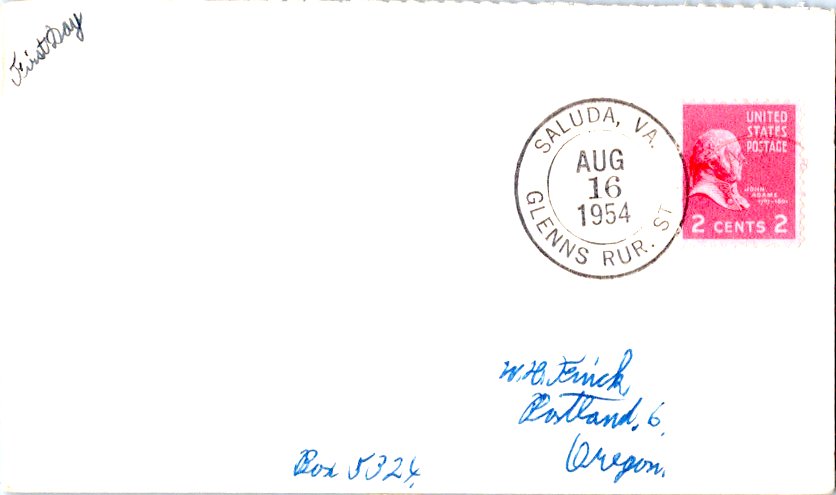 First Day
SALUDA, VA.
AUG
16
1954
GLENNS RUR. ST
UNITED
STATES
POSTAGE
JOHN
ADAMS
2 CENTS 2
W. H. Finch
Portland, 6,
Oregon.
Box 5324,